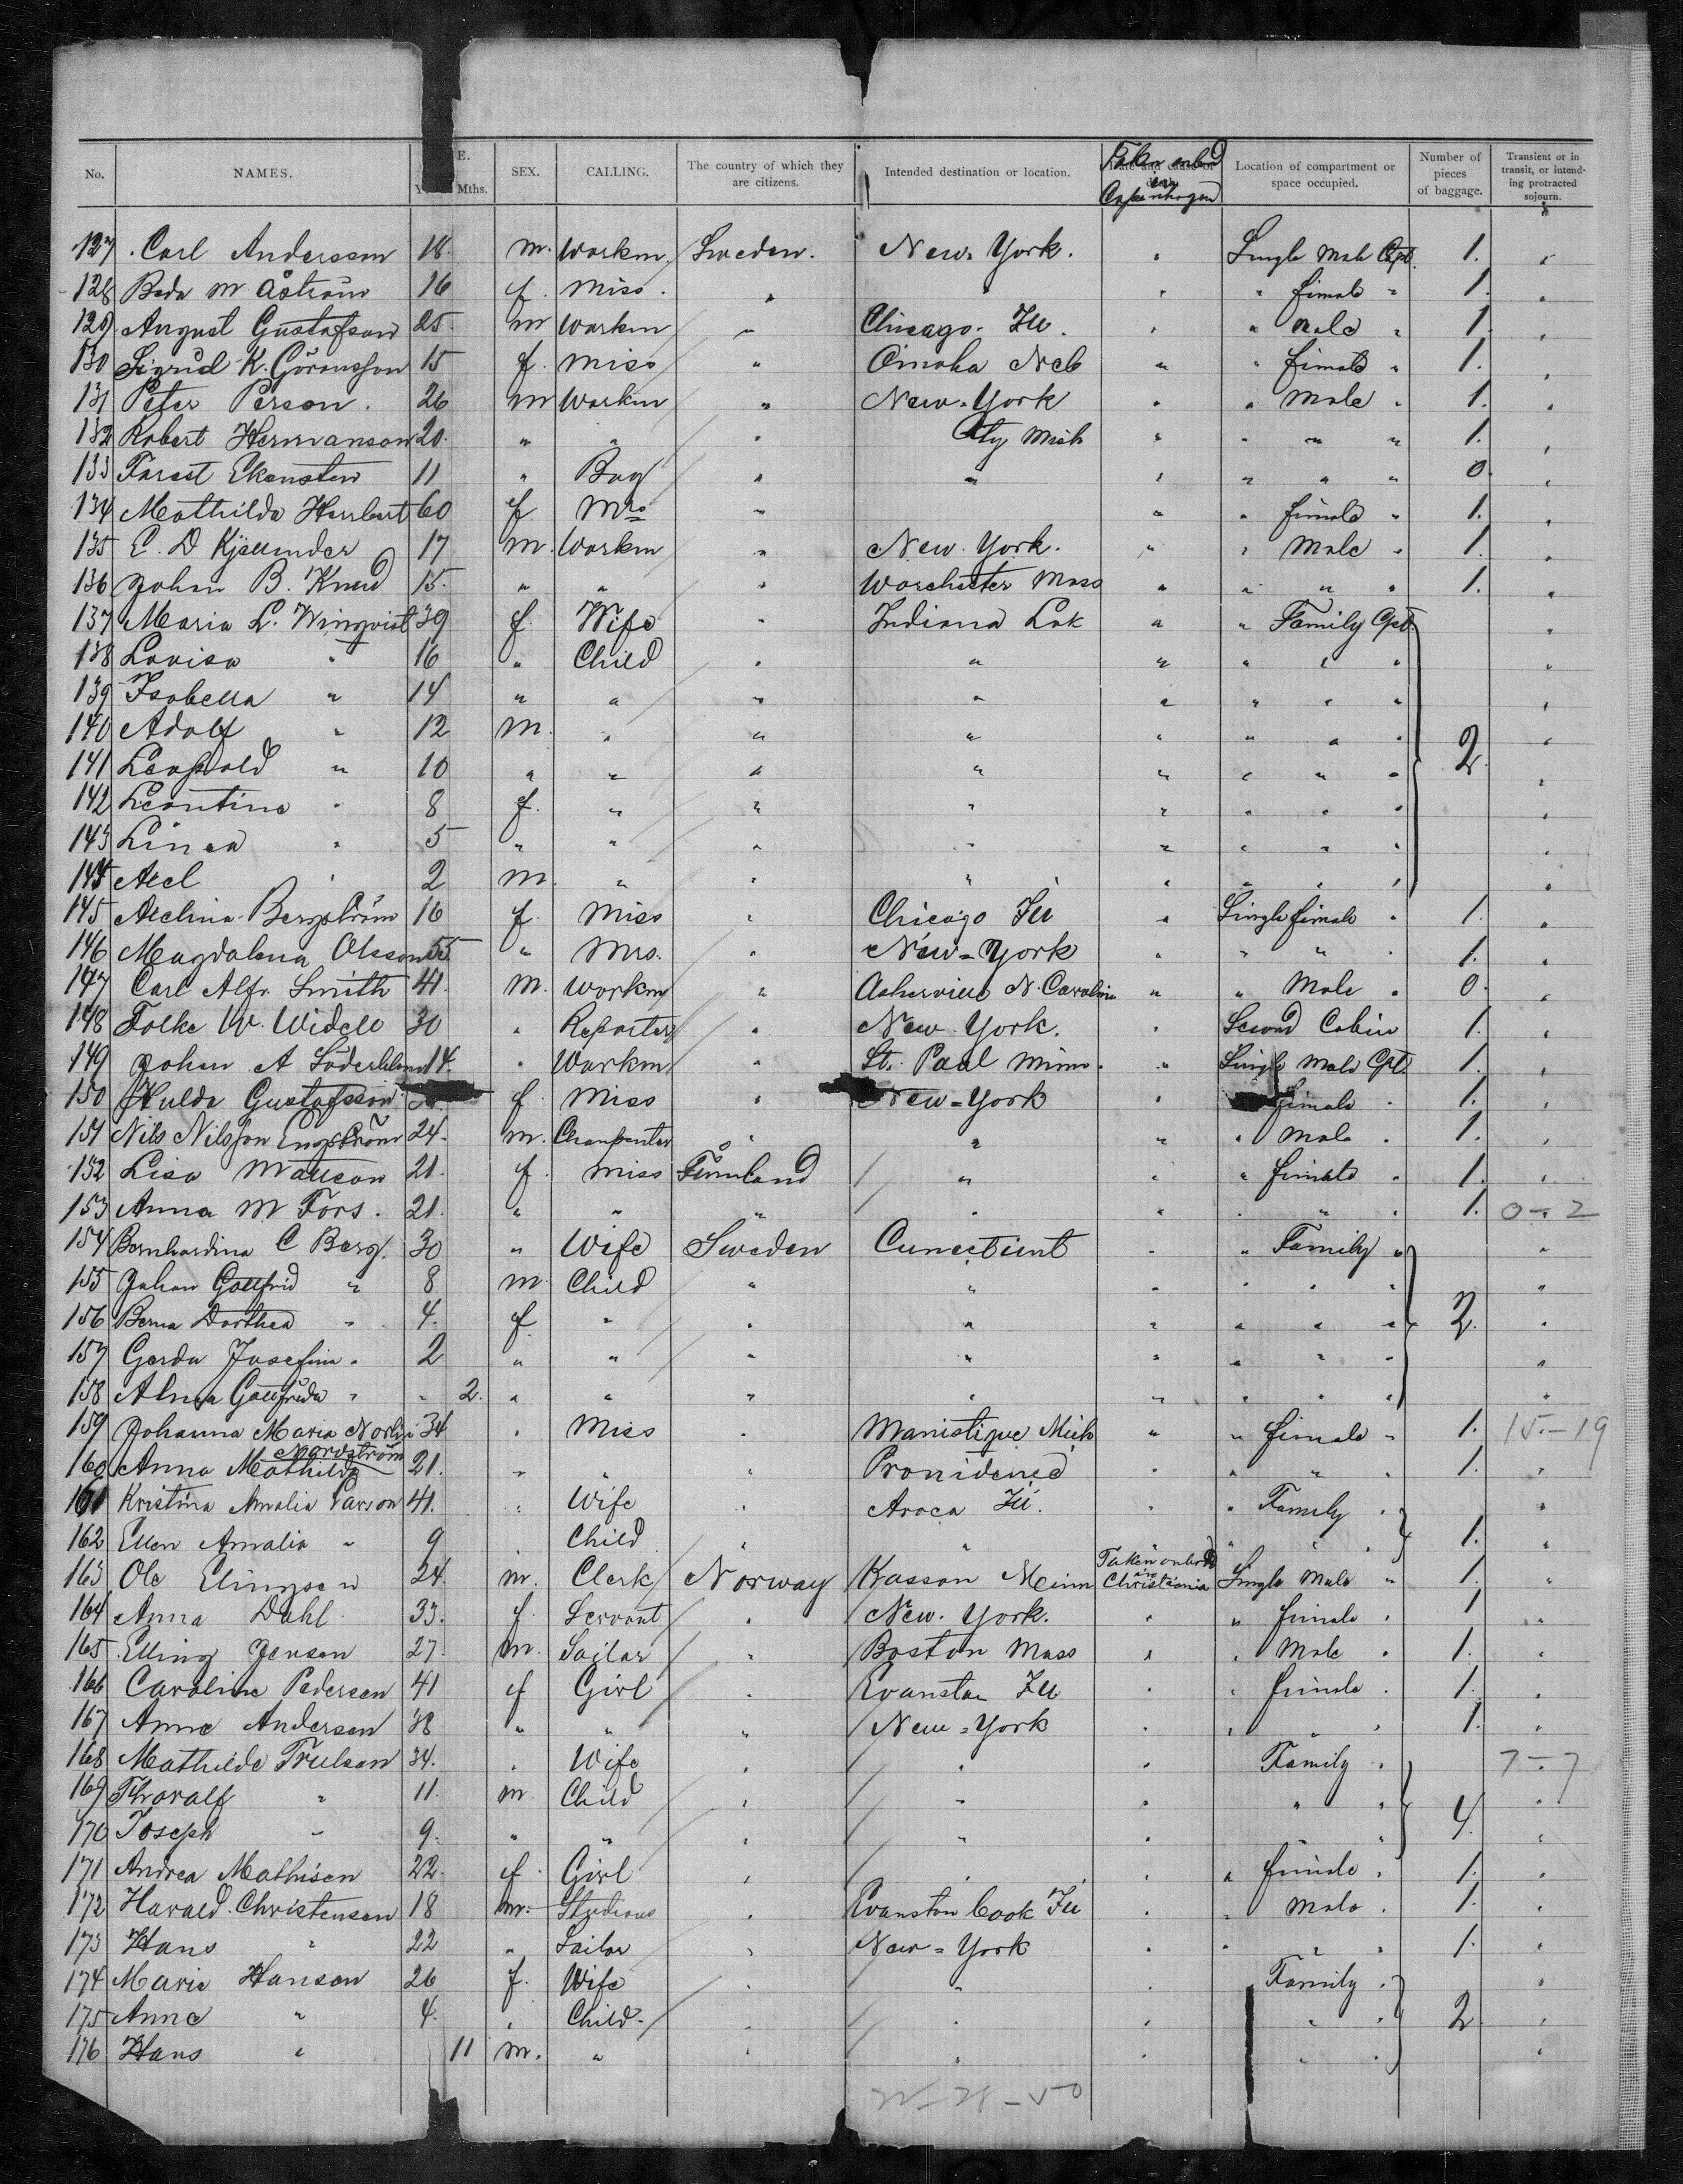 No. NAMES. E. Mths. SEX. CALLING. The country of which they are citizens. Intended destination or location. Taken onbd Copenhagen Location of compartment or space occupied. Number of pieces of baggage. Transient or in transit, or intending protracted sojourn.
127 Carl Andersson 18. m. Workm Sweden. New-York. " Single Male Cpt. 1. "
128 Beda M Åström 16 f. Miss. " " " " female " 1. "
129 August Gustafson 25. m Workm " Chicago. Ill. " " male " 1. "
130 Sigrid K. Göransson 15 f. Miss " Omaha Neb " " female " 1. "
131 Peter Person. 26 m Workm " New-York " " Male " 1. "
132 Robert Hermanson 20. " " " City Mich " " " " 1. "
133 Ekensten 11 " Boy " " " " " " 0. "
134 Mathilda Herrbert 60 f. Mrs " " " female " 1. "
135 C. D Kjellander 17 m. Workm " New York. " " Male " 1. "
136 Johan B. 15. " " " Worchester Mass " " " " 1. "
137 Maria L. Winqvist 39 f. Wife " Indiana " " Family Cpt. "
138 Lovisa " 16 " Child " " " " " " "
139 Isabella " 14 " " " " " " " " "
140 Adolf " 12 m. " " " " " " " 2. "
141 Leopold " 10 " " " " " " " " "
142 Leontina " 8 f. " " " " " " " "
143 Linea " 5 " " " " " " " " "
144 Axel " 2 m. " " " " " " " "
145 Axelina Bergström 16 f. Miss " Chicago Ill " Single female " 1. "
146 Magdalena Olsson 55 " Mrs. " New-York " " " " 1. "
147 Carl Alfr. Smith 41. m. Workm " Asheville N. Carolina " " Male " 0. "
148 Folke W. Widell 30 " Reporter " New York. " Second Cabin 1. "
149 Johan A Söderblom 14. " Workm " St. Paul Minn. " Single Male Cpt. 1. "
150 Hulda Gustafsson f. Miss " New-York " female " 1. "
151 Nils Nilsson Engström 24. m. Charpenter " " " " Male " 1. "
152 Lisa Mattson 21. f. Miss Finnland " " " female " 1. "
153 Anna M Fors. 21. " " " " " " " " 1. 0-2
154 Bernhardina C Berg. 30 " Wife Sweden Cunecticut " " Family " "
155 Johan Gottfrid " 8 m. Child " " " " " " "
156 Berna Dorthea " 4. f " " " " " " " 2. "
157 Gerda Josefina " 2 " " " " " " " " "
158 Alma Gottfrida " " 2. " " " " " " " " "
159 Johanna Maria Norlin 34 " Miss " Manistique Mich " " female " 1. 15-19
160 Anna Mathilda Nordström 21. " " " Providence " " " " 1. "
161 Kristina Amalia Larson 41. " Wife " Aroca Ill. " " Family " "
162 Ellen Amalia " 9 " Child " " " " " " 1. "
163 Ole Elingsen 24. m. Clerk Norway Kasson Minn Taken onbord Christiania Single Male " 1. "
164 Anna Dahl 33. f. Servant " New-York. " " female " 1 "
165 Elling Jensen 27. m. Sailor " Boston Mass " " Male " 1. "
166 Caroline Pedersen 41 f Girl " Evanston Ill " " female " 1. "
167 Anna Andersen 38 " " " New-York " " " " 1. "
168 Mathilde Trulsen 34. " Wife " " " Family " 7-7
169 Thoralf " 11. m. Child " " " " " "
170 Joseph " 9. " " " " " " 4. "
171 Andrea Mathisen 22. f. Girl " " " " female " 1. "
172 Harald Christensen 18 m. Studious " Evanston Cook Ill " " Male " 1. "
173 Hans " 22 " Sailor " New-York " " " " 1. "
174 Marie Hanson 26 f. Wife " " " Family " "
175 Anna " 4. " Child " " " " " 2 "
176 Hans " 11 m. " " " " " " "